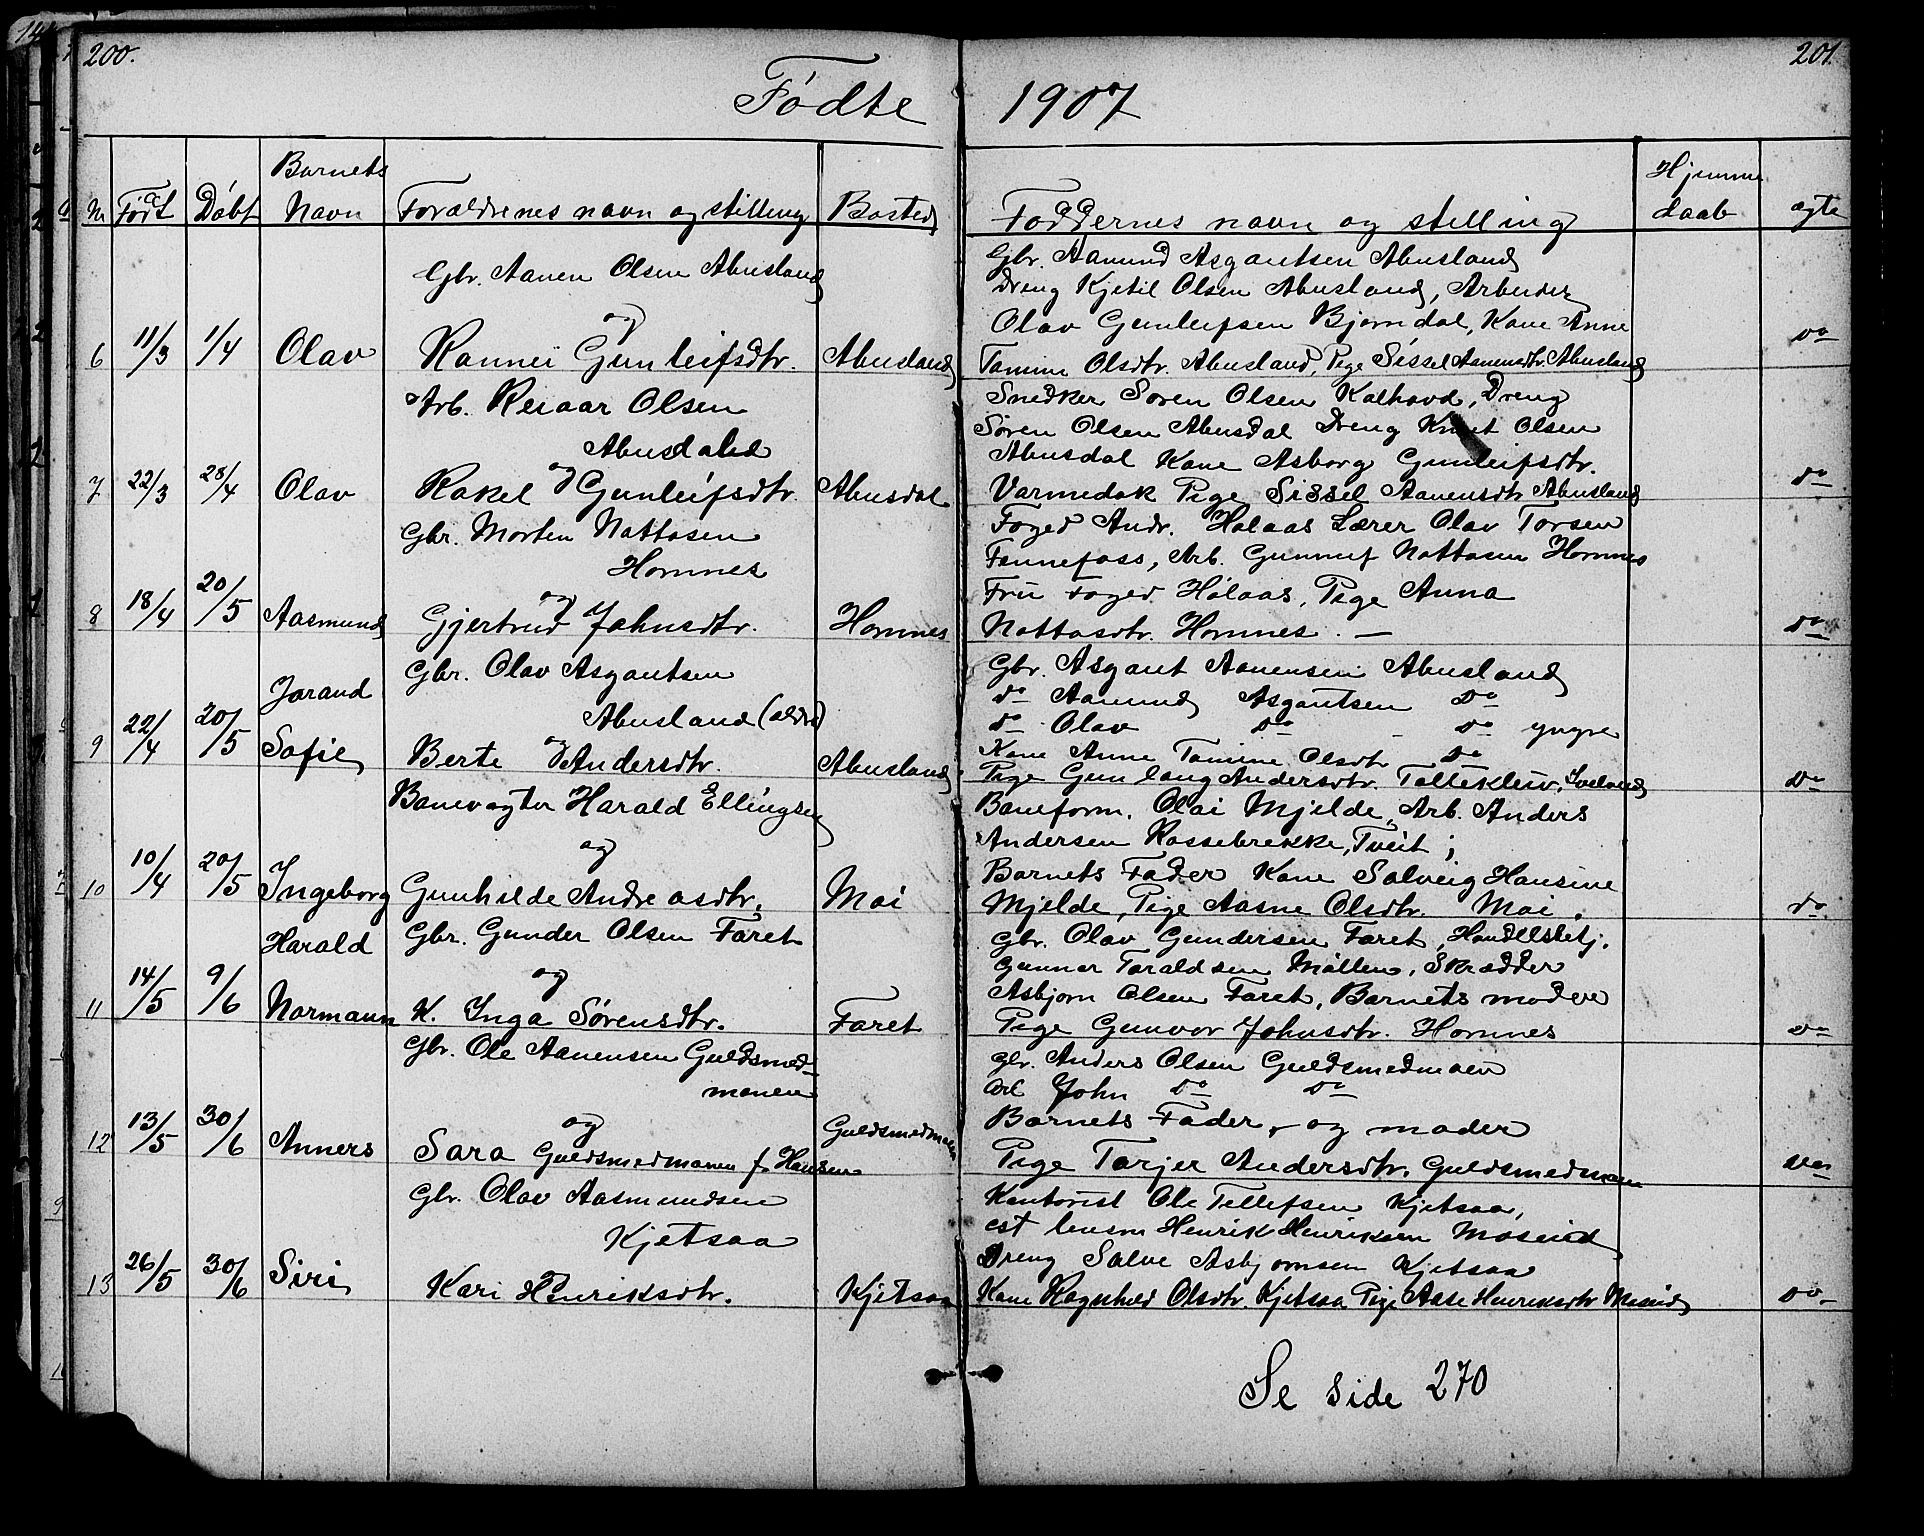 200.
201.
Födte 1907
Nr Født Döbt Barnets Navn Forældrenes navn og stilling Bosted Foddernes navn og stilling Hjemme daab ægte
Gbr. Aanen Olsen Abusland
og
6 11/3 1/4 Olav Rannei Gunleifsdtr. Abusland
Gbr. Aamund Asgautsen Abusland
Dreng Kjetil Olsen Abusland, Arbeider
Olav Gunleifsen Bjorndal, Kane Anne
Tomine Olsdtr. Abusland, Pige Sissel Aanensdtr. Abusland do
Arb. Reiaar Olsen
Abusdal
og
7 22/3 28/4 Olav Rakel Gunleifsdtr. Abusdal
Snedker Soren Olsen Kalhovd, Dreng
Sören Olsen Abusdal Dreng Knut Olsen
Abusdal Kane Asborg Gunleifsdtr.
Varmedak Pige Sissel Aanensdtr Abusland do
Gbr. Morten Nottosen
Hornnes
og
8 18/4 20/5 Aasmund Gjertrud Johnsdtr. Hornnes
Foged Andr. Holaas Lærer Olav Torsen
Fennefoss, Arb. Gunnuf Nottosen Hornnes
Fru Foged Hölaas, Pige Anna
Nottosdtr. Hornnes. — do
Gbr. Olav Asgautsen
Abusland (eldre)
og
9 22/4 20/5 Jorand Sofie Berte Andersdtr. Abusland
Gbr. Asgaut Aanensen Abusland
do Aamund Asgautsen do
do Olav do - do yngre
Kane Anne Tomine Olsdtr do
Pige Gunlaug Andersdtr. Tolleklew, Iveland do
Banevogter Harald Ellingsen
og
10 10/4 20/5 Ingeborg Gunhilde Andreasdtr. Moi
Baneform. Olai Mjelde, Arb. Anders
Andersen Rossebrekke, Tveit;
Barnets Fader Kane Solveig Hansine
Mjelde, Pige Aasne Olsdtr. Moi. do
Gbr. Gunder Olsen Faret
og
11 14/5 9/6 Harald Normann K. Inga Sørensdtr. Faret
Gbr. Olav Gundersen Faret, Handelsbetj.
Gunnar Taraldsen Möllen, Skrædder
Asbjorn Olsen Faret, Barnets moder
Pige Gunvor Johnsdtr. Hornnes do
Gbr. Ole Aanensen Guldsmed-
monen
og
12 13/5 30/6 Anners Sara Guldsmedmonen f. Hansen Guldsmedmoen
Gbr. Anders Olsen Guldsmedmoen
Arb John do do
Barnets Fader, og moder
Pige Torjer Andersdtr. Guldsmedmoen do
Gbr. Olav Aasmundsen
Kjetsaa
13 26/5 30/6 Siri Kari Henriksdtr. Kjetsaa
Kontorist Ole Tellefsen Kjetsaa,
est lensm Henrik Henriksen Moseid
Dreng Salve Asbjornsen Kjetsaa
Kane Ragnhild Olsdtr. Kjetsaa Pige Aase Henriksdtr Moseid do
Se side 270